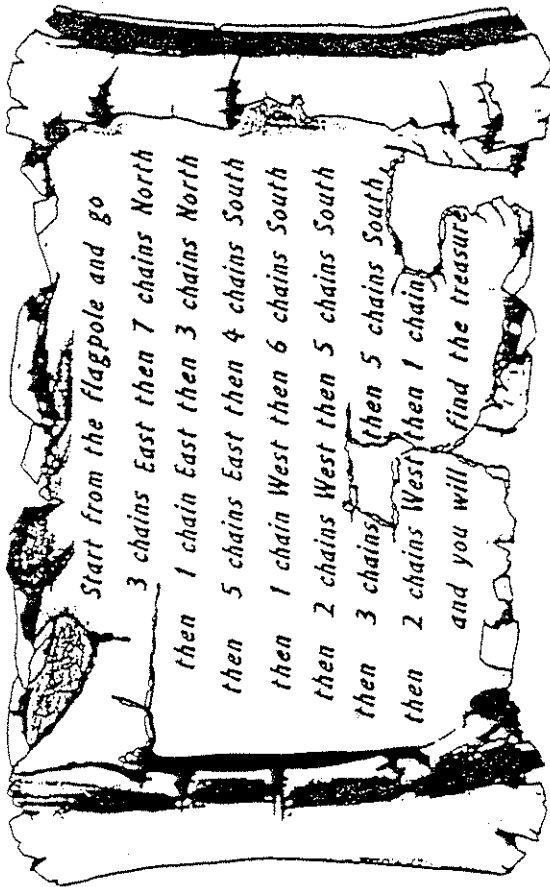 Start from the flagpole and go
3 chains East then 7 chains North
then 1 chain East then 3 chains North
then 5 chains East then 4 chains South
then 1 chain West then 6 chains South
then 2 chains West then 5 chains South
then 3 chains then 5 chains South
then 2 chains West then 1 chain
and you will find the treasure